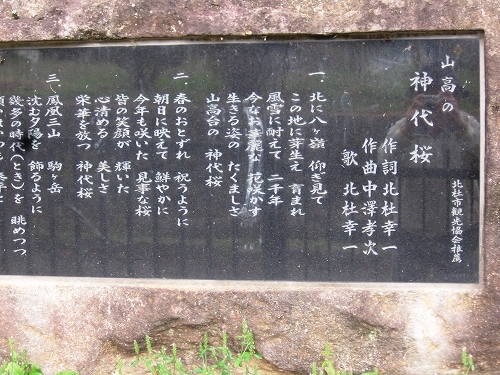 山高の
神代桜
北杜市観光協会推薦
作詞 北杜幸一
作曲 中澤孝次
歌 北杜幸一
一、北に八ヶ嶺 仰ぎ見て
この地に芽生え 育まれ
風雪に耐えて 二千年
今なお華麗な 花咲かす
生きる姿の たくましさ
山高の 神代桜
二、春のおとずれ 祝うように
朝日に映えて 鮮やかに
今年も咲いた 見事な桜
皆の笑顔が 輝いた
心清める 美しさ
栄華を放つ 神代桜
三、鳳凰三山 駒ヶ岳
沈む夕陽を 飾るように
幾多の時代(とき)を 眺めつつ